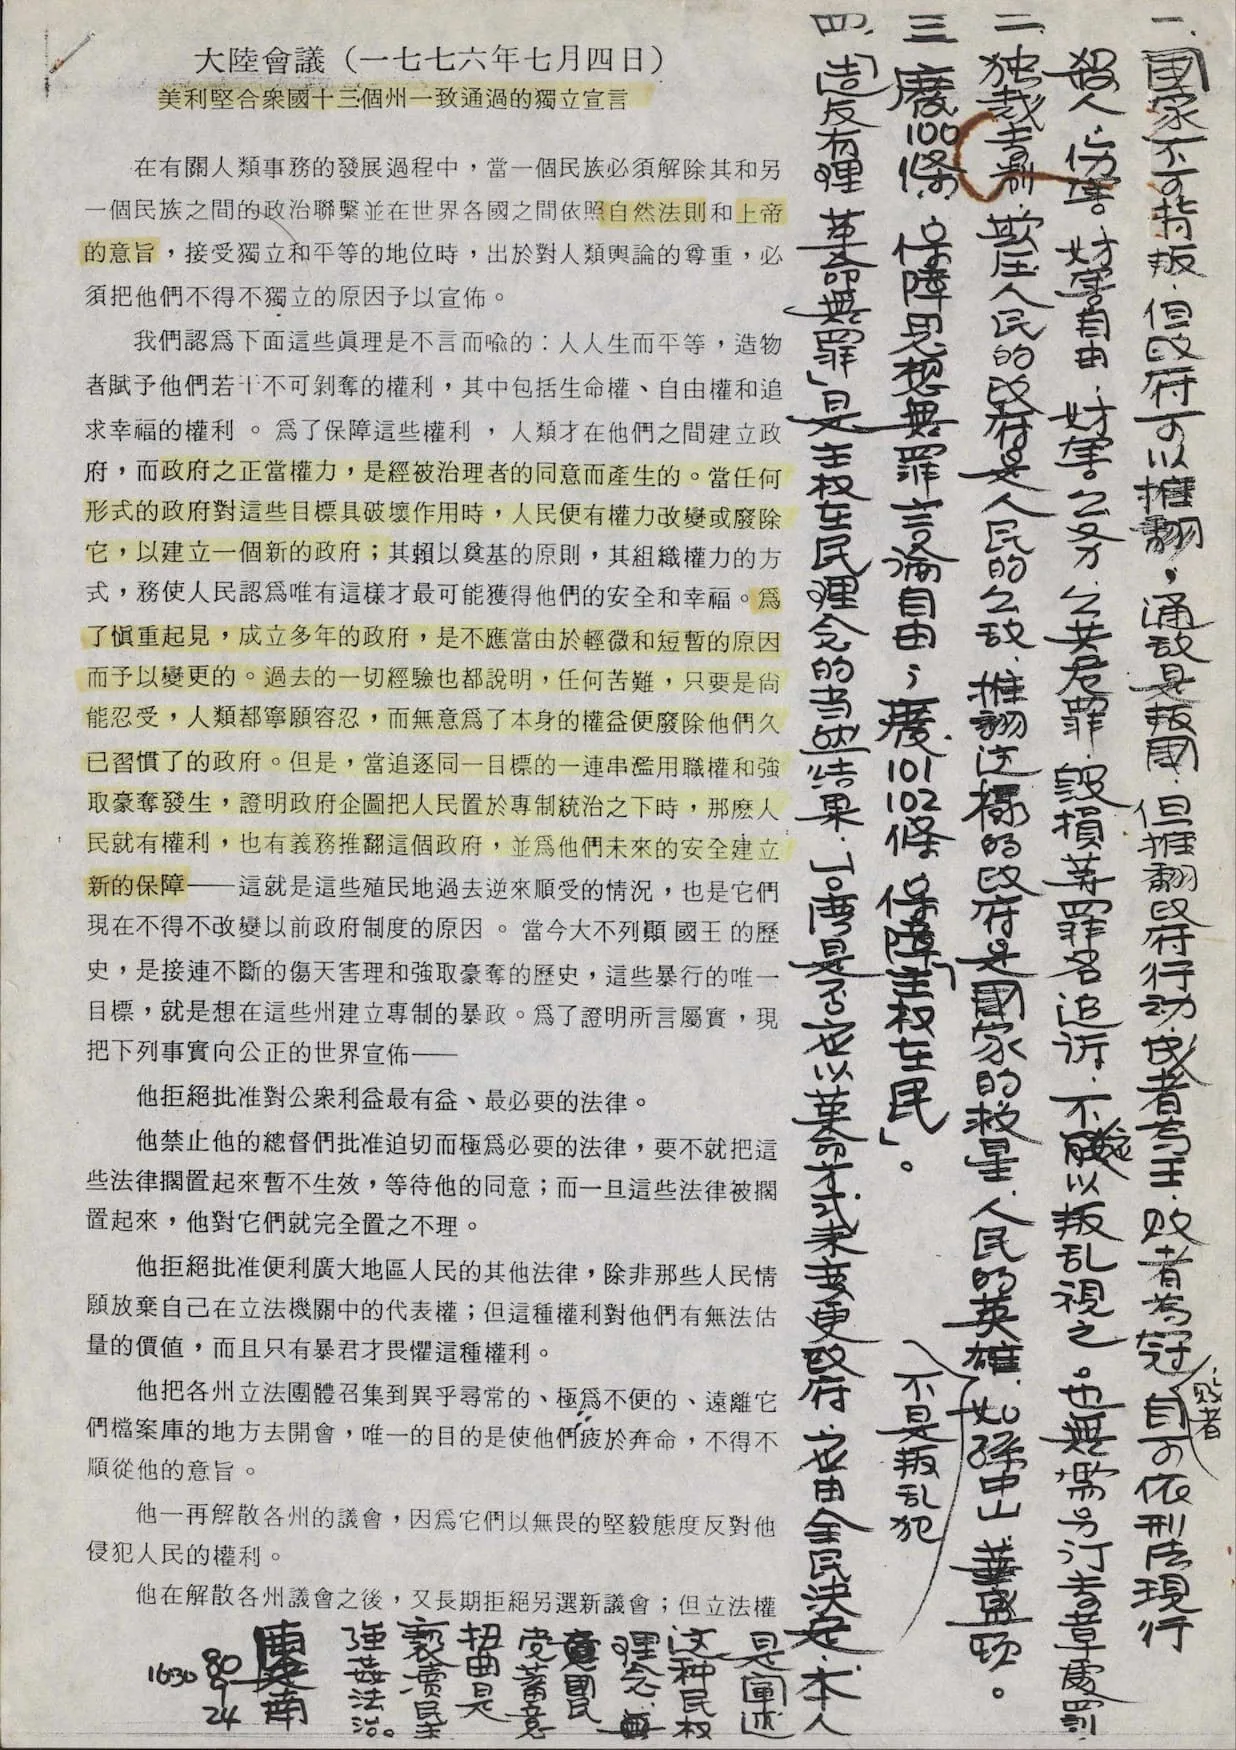 大陸會議（一七七六年七月四日）
美利堅合衆國十三個州一致通過的獨立宣言
在有關人類事務的發展過程中，當一個民族必須解除其和另
一個民族之間的政治聯繫並在世界各國之間依照自然法則和上帝
的意旨，接受獨立和平等的地位時，出於對人類輿論的尊重，必
須把他們不得不獨立的原因予以宣佈。
我們認爲下面這些眞理是不言而喩的：人人生而平等，造物
者賦予他們若干不可剝奪的權利，其中包括生命權、自由權和追
求幸福的權利。爲了保障這些權利，人類才在他們之間建立政
府，而政府之正當權力，是經被治理者的同意而產生的。當任何
形式的政府對這些目標具破壞作用時，人民便有權力改變或廢除
它，以建立一個新的政府；其賴以奠基的原則，其組織權力的方
式，務使人民認爲唯有這樣才最可能獲得他們的安全和幸福。爲
了愼重起見，成立多年的政府，是不應當由於輕微和短暫的原因
而予以變更的。過去的一切經驗也都說明，任何苦難，只要是尙
能忍受，人類都寧願容忍，而無意爲了本身的權益便廢除他們久
已習慣了的政府。但是，當追逐同一目標的一連串濫用職權和強
取豪奪發生，證明政府企圖把人民置於專制統治之下時，那麽人
民就有權利，也有義務推翻這個政府，並爲他們未來的安全建立
新的保障——這就是這些殖民地過去逆來順受的情況，也是它們
現在不得不改變以前政府制度的原因。當今大不列顚國王的歷
史，是接連不斷的傷天害理和強取豪奪的歷史，這些暴行的唯一
目標，就是想在這些州建立專制的暴政。爲了證明所言屬實，現
把下列事實向公正的世界宣佈——
他拒絕批准對公衆利益最有益、最必要的法律。
他禁止他的總督們批准迫切而極爲必要的法律，要不就把這
些法律擱置起來暫不生效，等待他的同意；而一旦這些法律被擱
置起來，他對它們就完全置之不理。
他拒絕批准便利廣大地區人民的其他法律，除非那些人民情
願放棄自己在立法機關中的代表權；但這種權利對他們有無法估
量的價值，而且只有暴君才畏懼這種權利。
他把各州立法團體召集到異乎尋常的、極爲不便的、遠離它
們檔案庫的地方去開會，唯一的目的是使他們疲於奔命，不得不
順從他的意旨。
他一再解散各州的議會，因爲它們以無畏的堅毅態度反對他
侵犯人民的權利。
他在解散各州議會之後，又長期拒絕另選新議會；但立法權
一、國家不可背叛，但政府可以推翻，通敌是叛國，但推翻政府行动，成者为王，敗者为寇，敗者自可依刑法現行
殺人、伤害。妨害自由、妨害公务、公共危罪、毀損等罪名追訴，不能以叛乱視之。也無需另订专章處罰
二、独裁专制、欺压人民的政府是人民的公敌，推翻这樣的政府是國家的救星、人民的英雄，如孫中山、華盛頓。
不是叛乱犯
三、廢100條，保障思想無罪言論自由；廢101 102條，保障「主权在民」。
四、「造反有理 革命無罪」是主权在民理念的当然结果，台湾是否也以革命方式来变更政府，应由全民决定，本人
是阐述
这种民权
理念，無
意國民
党蓄意
扭曲是
褻瀆民主
強姦法治。
80
9
24
16:30